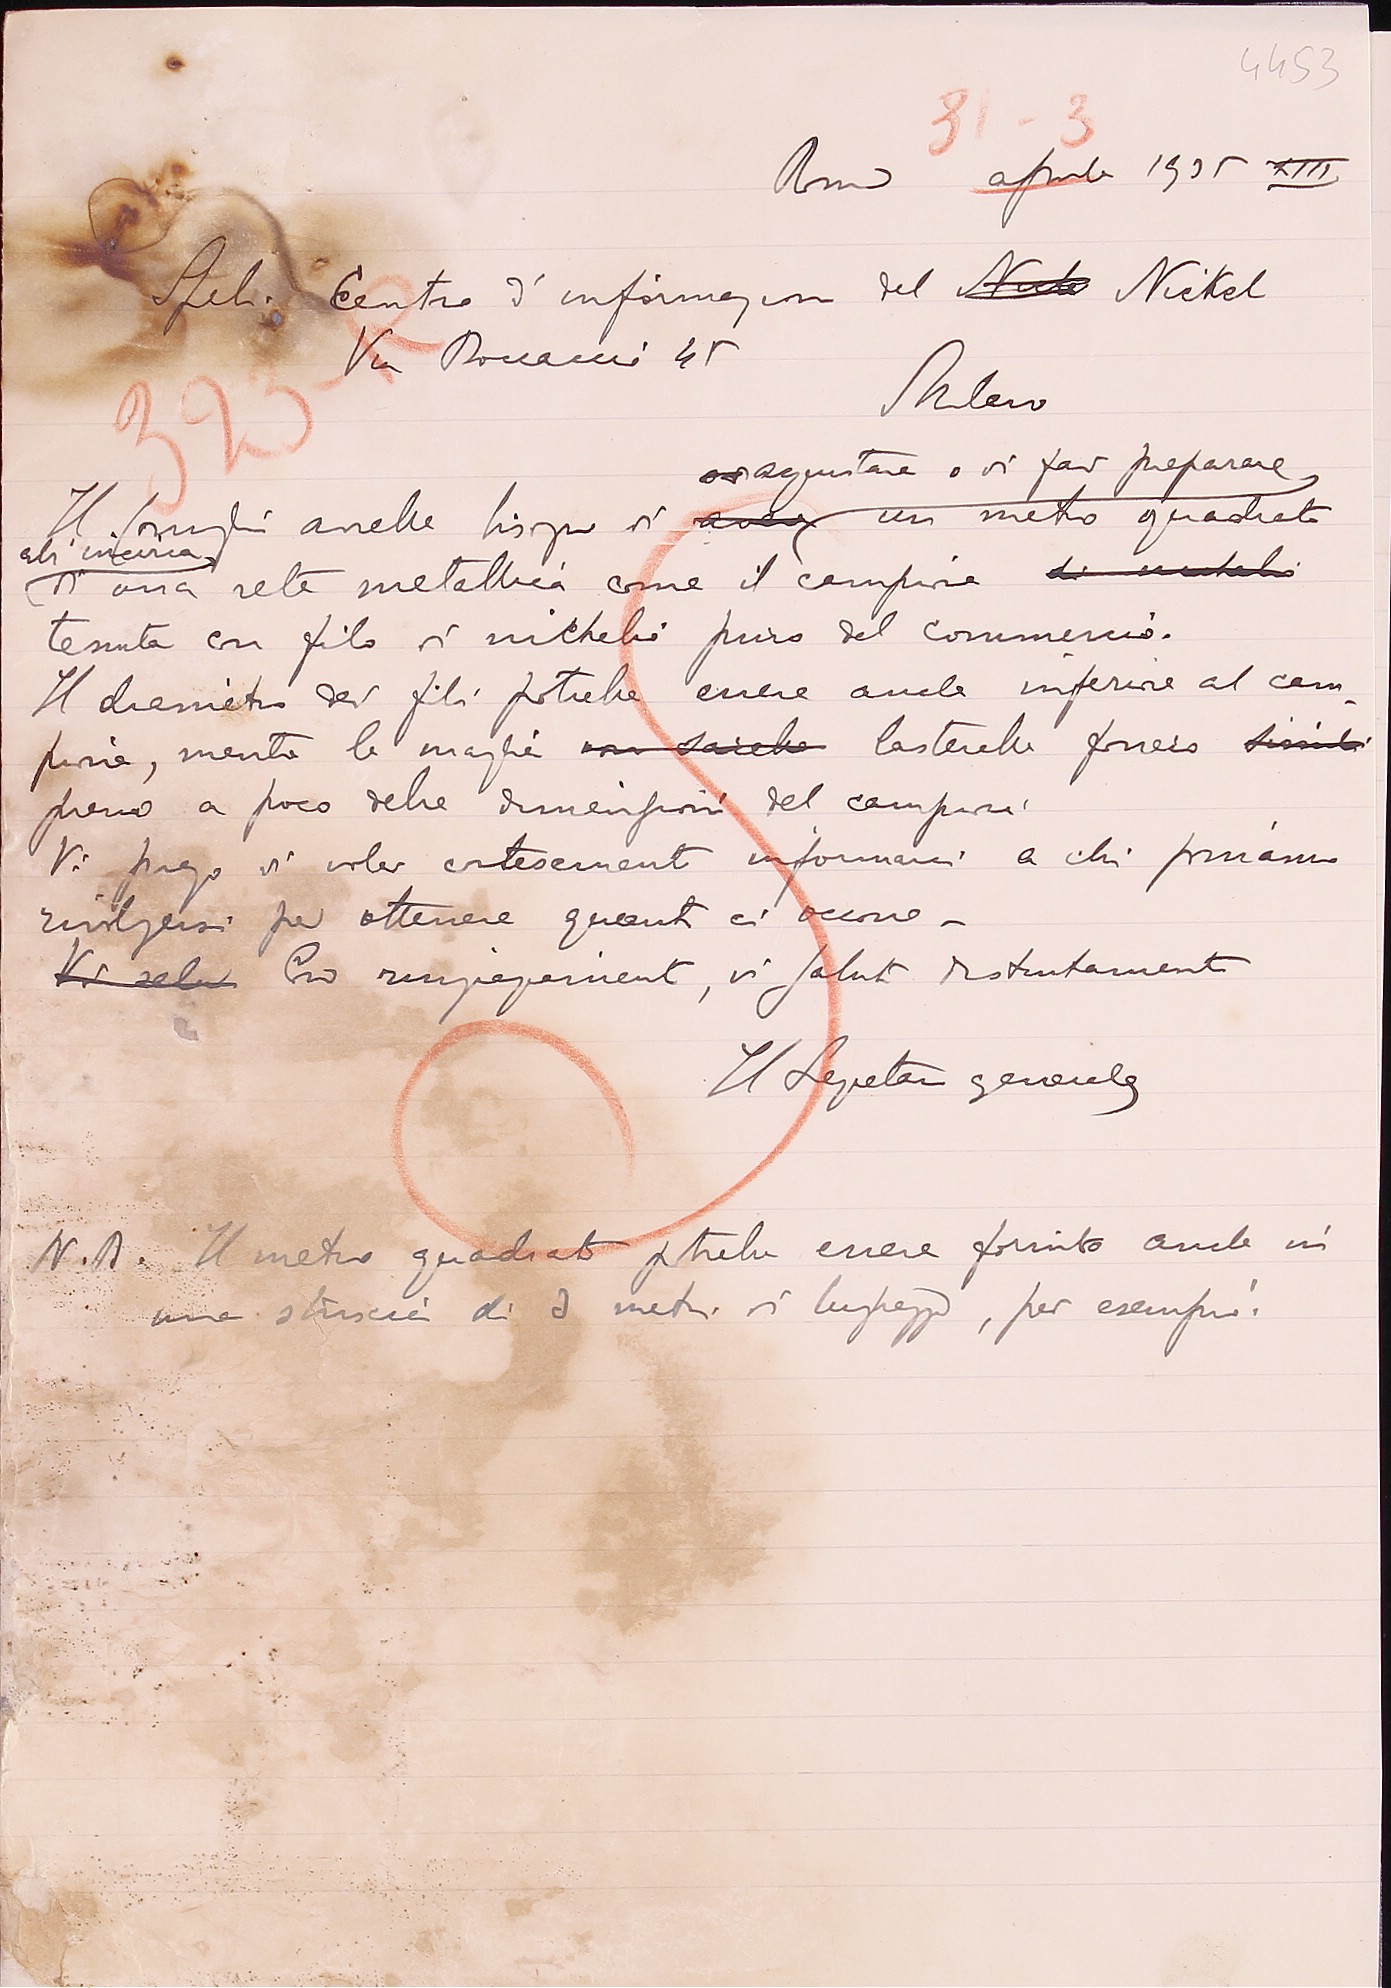 4453
31-3
Roma aprile 1935 XIII
Spett. Centro d'informazioni del Nickel
Via Boccaccio 45
Milano
323-R
acquistare o di far preparare
Il Consiglio avrebbe bisogno di aver un metro quadrato
all'incirca
di una rete metallica come il campione
tenuta con filo di nichelio puro del commercio.
Il diametro dei fili potrebbe essere anche inferiore al cam-
pione, mentre le maglie non sarebbe basterebbe fossero simili
presso a poco delle dimensioni del campione.
Vi prego di voler cortesemente informarci a chi possiamo
rivolgersi per ottenere quanto ci occorre -
Con ringraziamenti, vi saluto distintamente
Il Segretario generale
N.B. Il metro quadrato potrebbe essere fornito anche in
una striscia di 2 metri di lunghezza, per esempio.